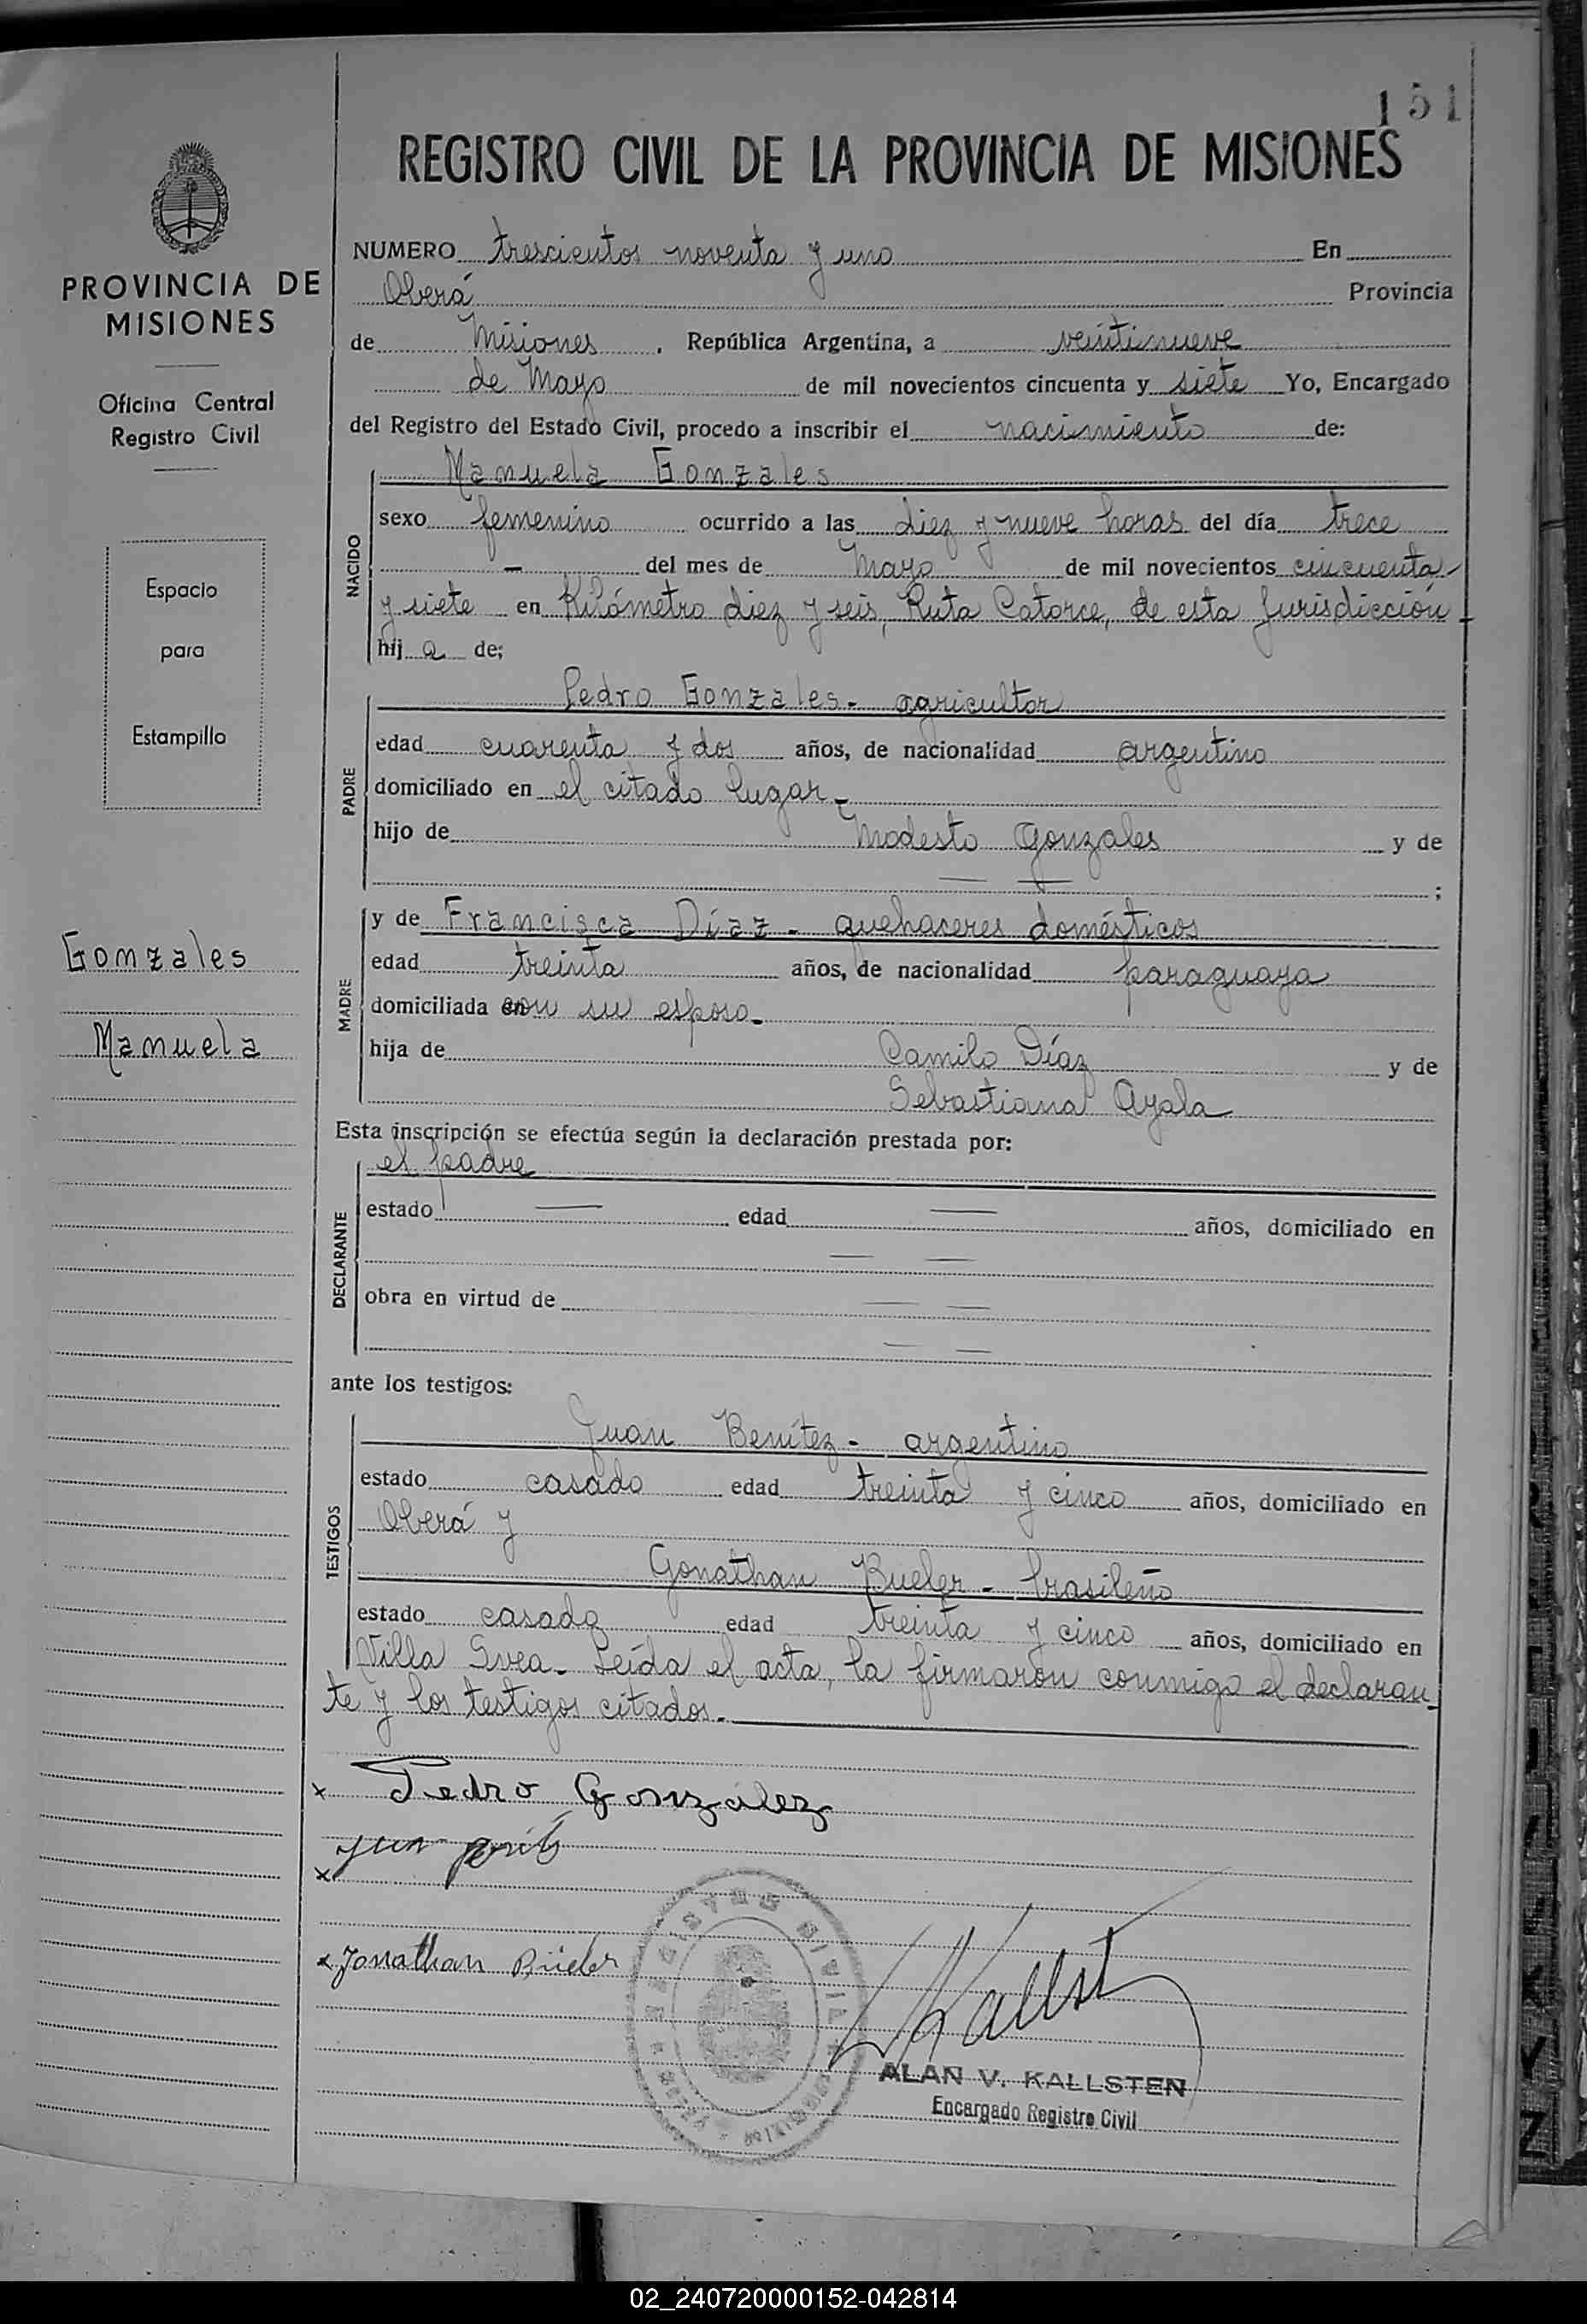 151
REGISTRO CIVIL DE LA PROVINCIA DE MISIONES
PROVINCIA DE
MISIONES
Oficina Central
Registro Civil
Espacio
para
Estampillo
Gonzales
Manuela
NUMERO trescientos noventa y uno En
Oberá Provincia
de Misiones, República Argentina, a veintinueve
de Mayo de mil novecientos cincuenta y siete Yo, Encargado
del Registro del Estado Civil, procedo a inscribir el nacimiento de:
NACIDO
Manuela Gonzales
sexo femenino ocurrido a las diez y nueve horas del día trece
- del mes de Mayo de mil novecientos cincuenta
y siete en Kilómetro diez y seis, Ruta Catorce, de esta Jurisdicción
hij a de;
PADRE
Pedro Gonzales - agricultor
edad cuarenta y dos años, de nacionalidad argentino
domiciliado en el citado lugar -
hijo de Modesto Gonzales y de
— — ;
MADRE
y de Francisca Díaz - quehaceres domésticos
edad treinta años, de nacionalidad paraguaya
domiciliada con su esposo -
hija de Camilo Díaz y de
Sebastiana Ayala
Esta inscripción se efectúa según la declaración prestada por:
DECLARANTE
el padre
estado — edad — años, domiciliado en
— —
obra en virtud de — —
— —
ante los testigos:
TESTIGOS
Juan Benítez - argentino
estado casado edad treinta y cinco años, domiciliado en
Oberá y
Gonathan Bueler - brasileño
estado casado edad treinta y cinco años, domiciliado en
Villa Svea - Leída el acta, la firmaron conmigo el declaran-
te y los testigos citados.-
x Pedro González
x
x Jonathan Büeler
REGISTRO CIVIL
Kallst
ALAN V. KALLSTEN
Encargado Registro Civil
02_240720000152-042814